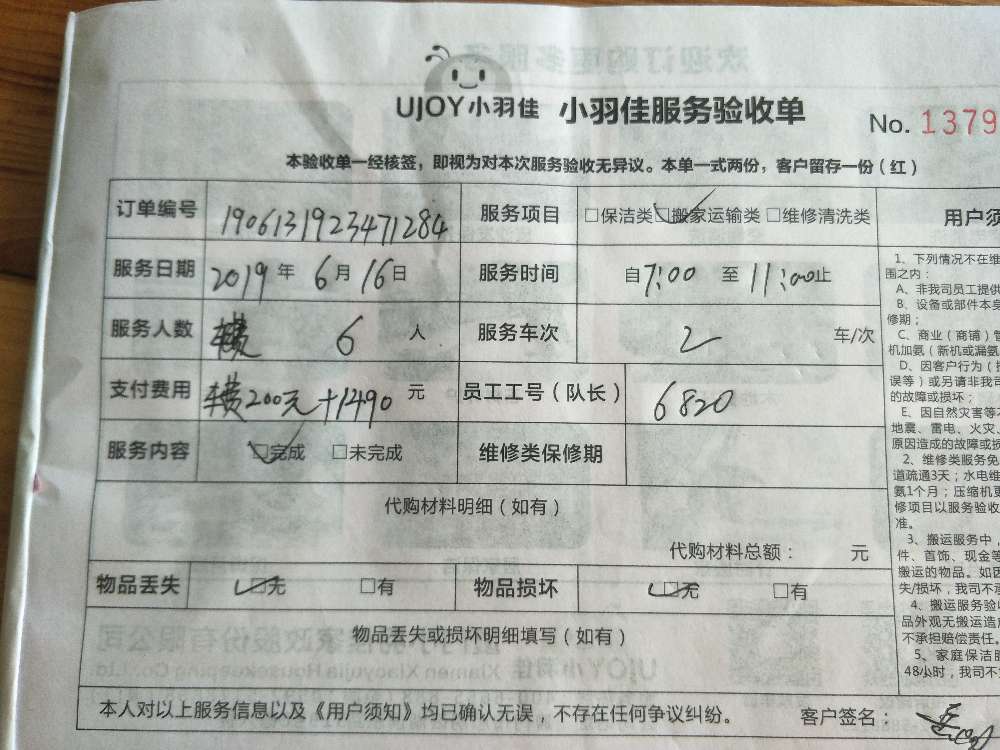 UJOY小羽佳 小羽佳服务验收单 No. 1379
本验收单一经核签，即视为对本次服务验收无异议。本单一式两份，客户留存一份（红）
订单编号 1906131923471284 服务项目 □保洁类 □搬家运输类 □维修清洗类
服务日期 2019年6月16日 服务时间 自7:00 至 11:00止
服务人数 6 人 服务车次 2 车/次
支付费用 200元+1490 元 员工工号（队长） 6820
服务内容 □完成 □未完成 维修类保修期
代购材料明细（如有）
代购材料总额： 元
物品丢失 □无 □有 物品损坏 □无 □有
物品丢失或损坏明细填写（如有）
本人对以上服务信息以及《用户须知》均已确认无误，不存在任何争议纠纷。 客户签名：
用户须
1、下列情况不在维
围之内：
A、非我司员工提供
B、设备或部件本身
修期；
C、商业（商铺）管
机加氨（新机或漏氨
D、因客户行为（
误等）或另请非我司
的故障或损坏；
E、因自然灾害等
地震、雷电、火灾、
原因造成的故障或损
2、维修类服务免
道疏通3天；水电维
氨1个月；压缩机更
修项目以服务验收
准。
3、搬运服务中，
件、首饰、现金等
搬运的物品。如因
失/损坏，我司不承
4、搬运服务验收
品外观无搬运造成
不承担赔偿责任。
5、家庭保洁服
48小时，我司不